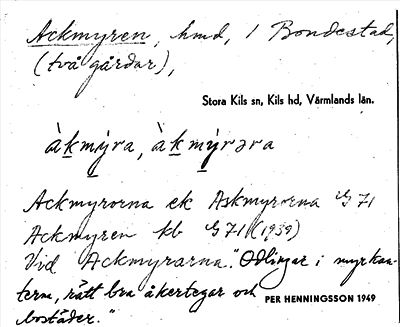 Ackmyren, hmd, / Bondestad,
(två gårdar),
Stora Kils sn, Kils hd, Värmlands län.
àkmýra, àkmýrəra
Ackmyrorna ek Askmyrorna G 71
Ackmyren kb G 71 (1939)
Vid Ackmyrarna. "Odlingar i myrkan-
terna, rätt bra åkertegar och
PER HENNINGSSON 1949
bostäder."